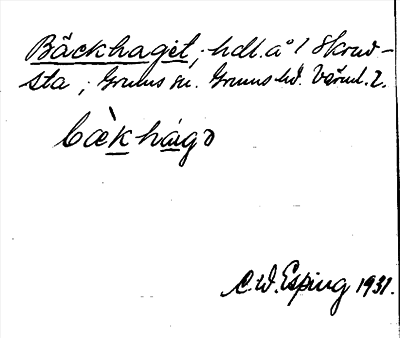 Bäckhaget, hdl. å 1 Skrud-
sta, Grums sn. Grums hd. Värml. l.
bæ̀khágə
C.W. Esping 1931.